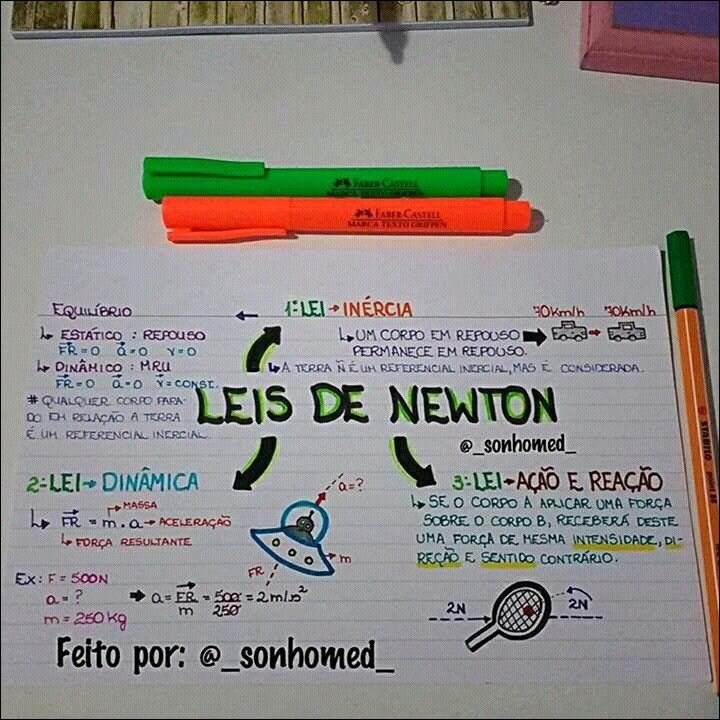 FABER-CASTELL
MARCA TEXTO GRIFPEN
FABER-CASTELL
MARCA TEXTO GRIFPEN
STABILO
point 88
EQUILÍBRIO
↳ ESTÁTICO : REPOUSO
FR=0 a=0 V=0
↳ DINÂMICO : MRU
FR=0 a=0 V=CONST.
# QUALQUER CORPO PARA-
DO EM RELAÇÃO A TERRA
É UM REFERENCIAL INERCIAL.
1ª LEI → INÉRCIA
↳ UM CORPO EM REPOUSO
PERMANECE EM REPOUSO.
70km/h 70km/h
↳ A TERRA Ñ É UM REFERENCIAL INERCIAL, MAS É CONSIDERADA.
LEIS DE NEWTON
@_sonhomed_
2ª LEI → DINÂMICA
MASSA
↳ FR = m . a → ACELERAÇÃO
↳ FORÇA RESULTANTE
a=?
m
FR
Ex: F = 500N
a = ?
m = 250 kg
➡ a = FR/m = 500/250 = 2 m/s²
3ª LEI → AÇÃO E REAÇÃO
↳ SE O CORPO A APLICAR UMA FORÇA
SOBRE O CORPO B, RECEBERÁ DESTE
UMA FORÇA DE MESMA INTENSIDADE, DI-
REÇÃO E SENTIDO CONTRÁRIO.
2N 2N
Feito por: @_sonhomed_